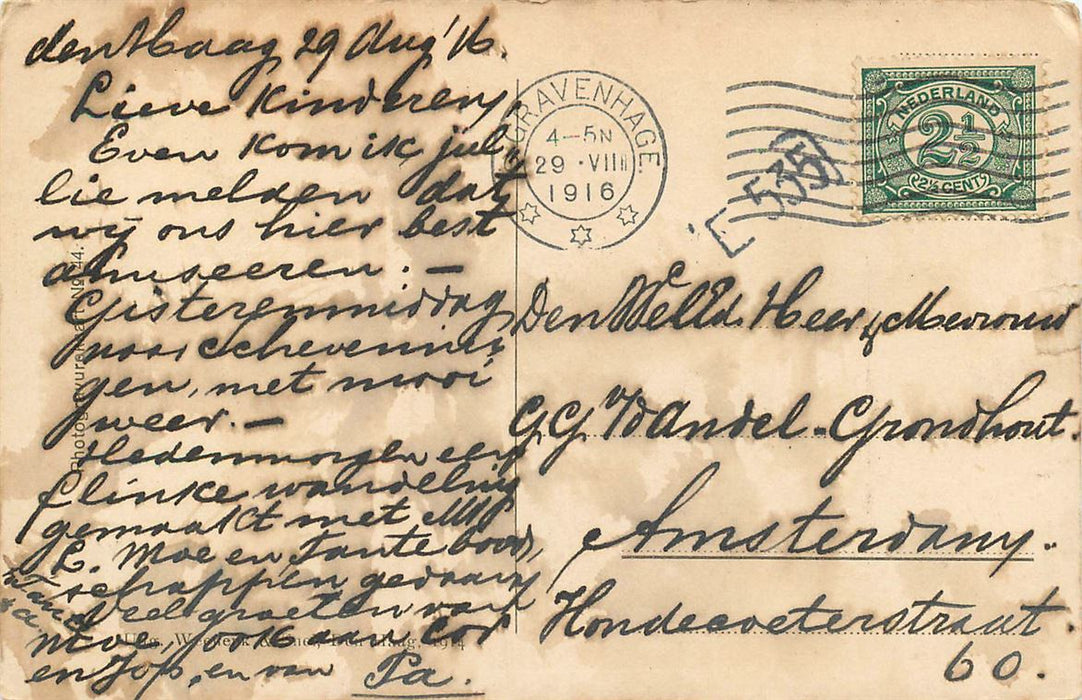 den Haag 29 Aug '16.
Lieve Kinderen,
Even kom ik jul-
lie melden dat
wij ons hier best
amuseeren. —
Gisterenmiddag
naar Schevenin-
gen, met mooi
weer. —
Hedenmorgen een
flinke wandeling
gemaakt met
L. Moe en Tante bood-
schappen gedaan
Veel groeten van
Moe, ook aan Cor
en Jo, en van Pa.
'S GRAVENHAGE.
4-5N
29 ·VIII
1916
E 535
NEDERLAND
2½
2½ CENT
Den WelEd. Heer & Mevrouw
G.G. v/d Andel-Grondhout.
Amsterdam.
Hondecoeterstraat.
60.
Photogravure
44.
Den Haag, 1914